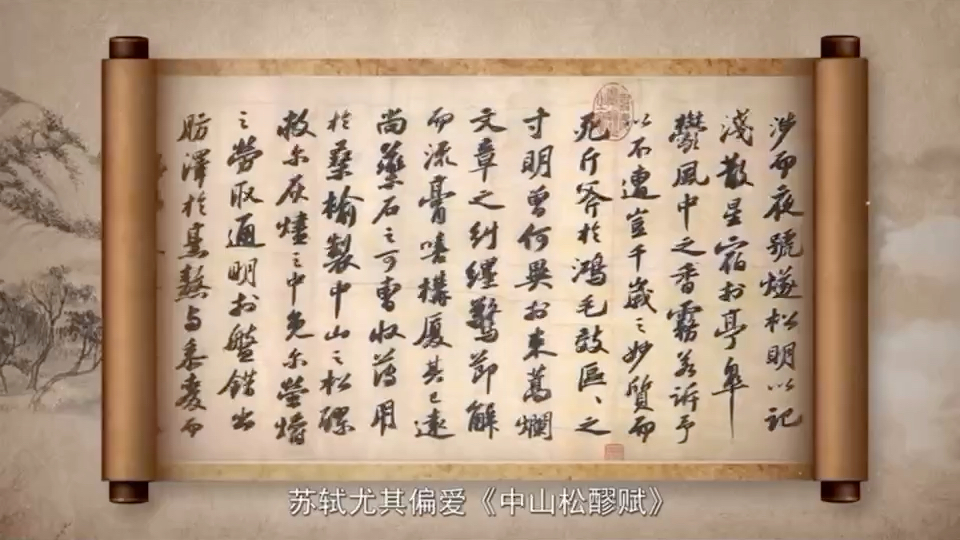 涉而夜號燧松明以記
淺散星宿於亭皋
鬱風中之香霧若訴予
以不遭豈千歲之妙質而
死斤斧於鴻毛效區區之
寸明曾何異於束蒿爛
文章之糾纆驚節解
而流膏嘻構廈其已遠
尚藥石之可曹收薄用
於桑榆製中山之松醪
救尔灰燼之中免尔螢爝
之勞取通明於盤錯出
肪澤於烹熬與黍麥而
苏轼尤其偏爱《中山松醪赋》